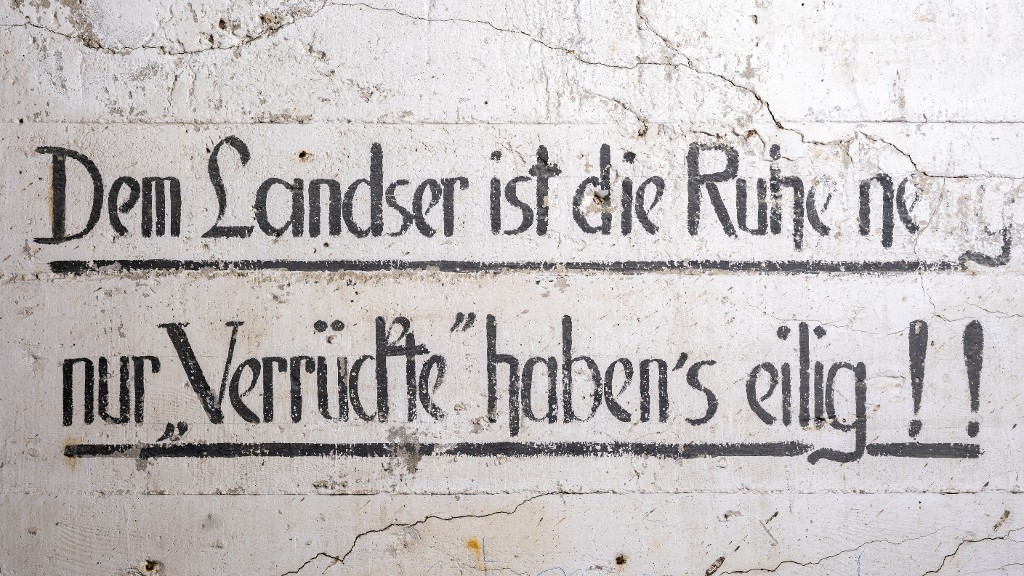 Dem Landser ist die Ruhe
nur „Verrückte" haben's eilig!!